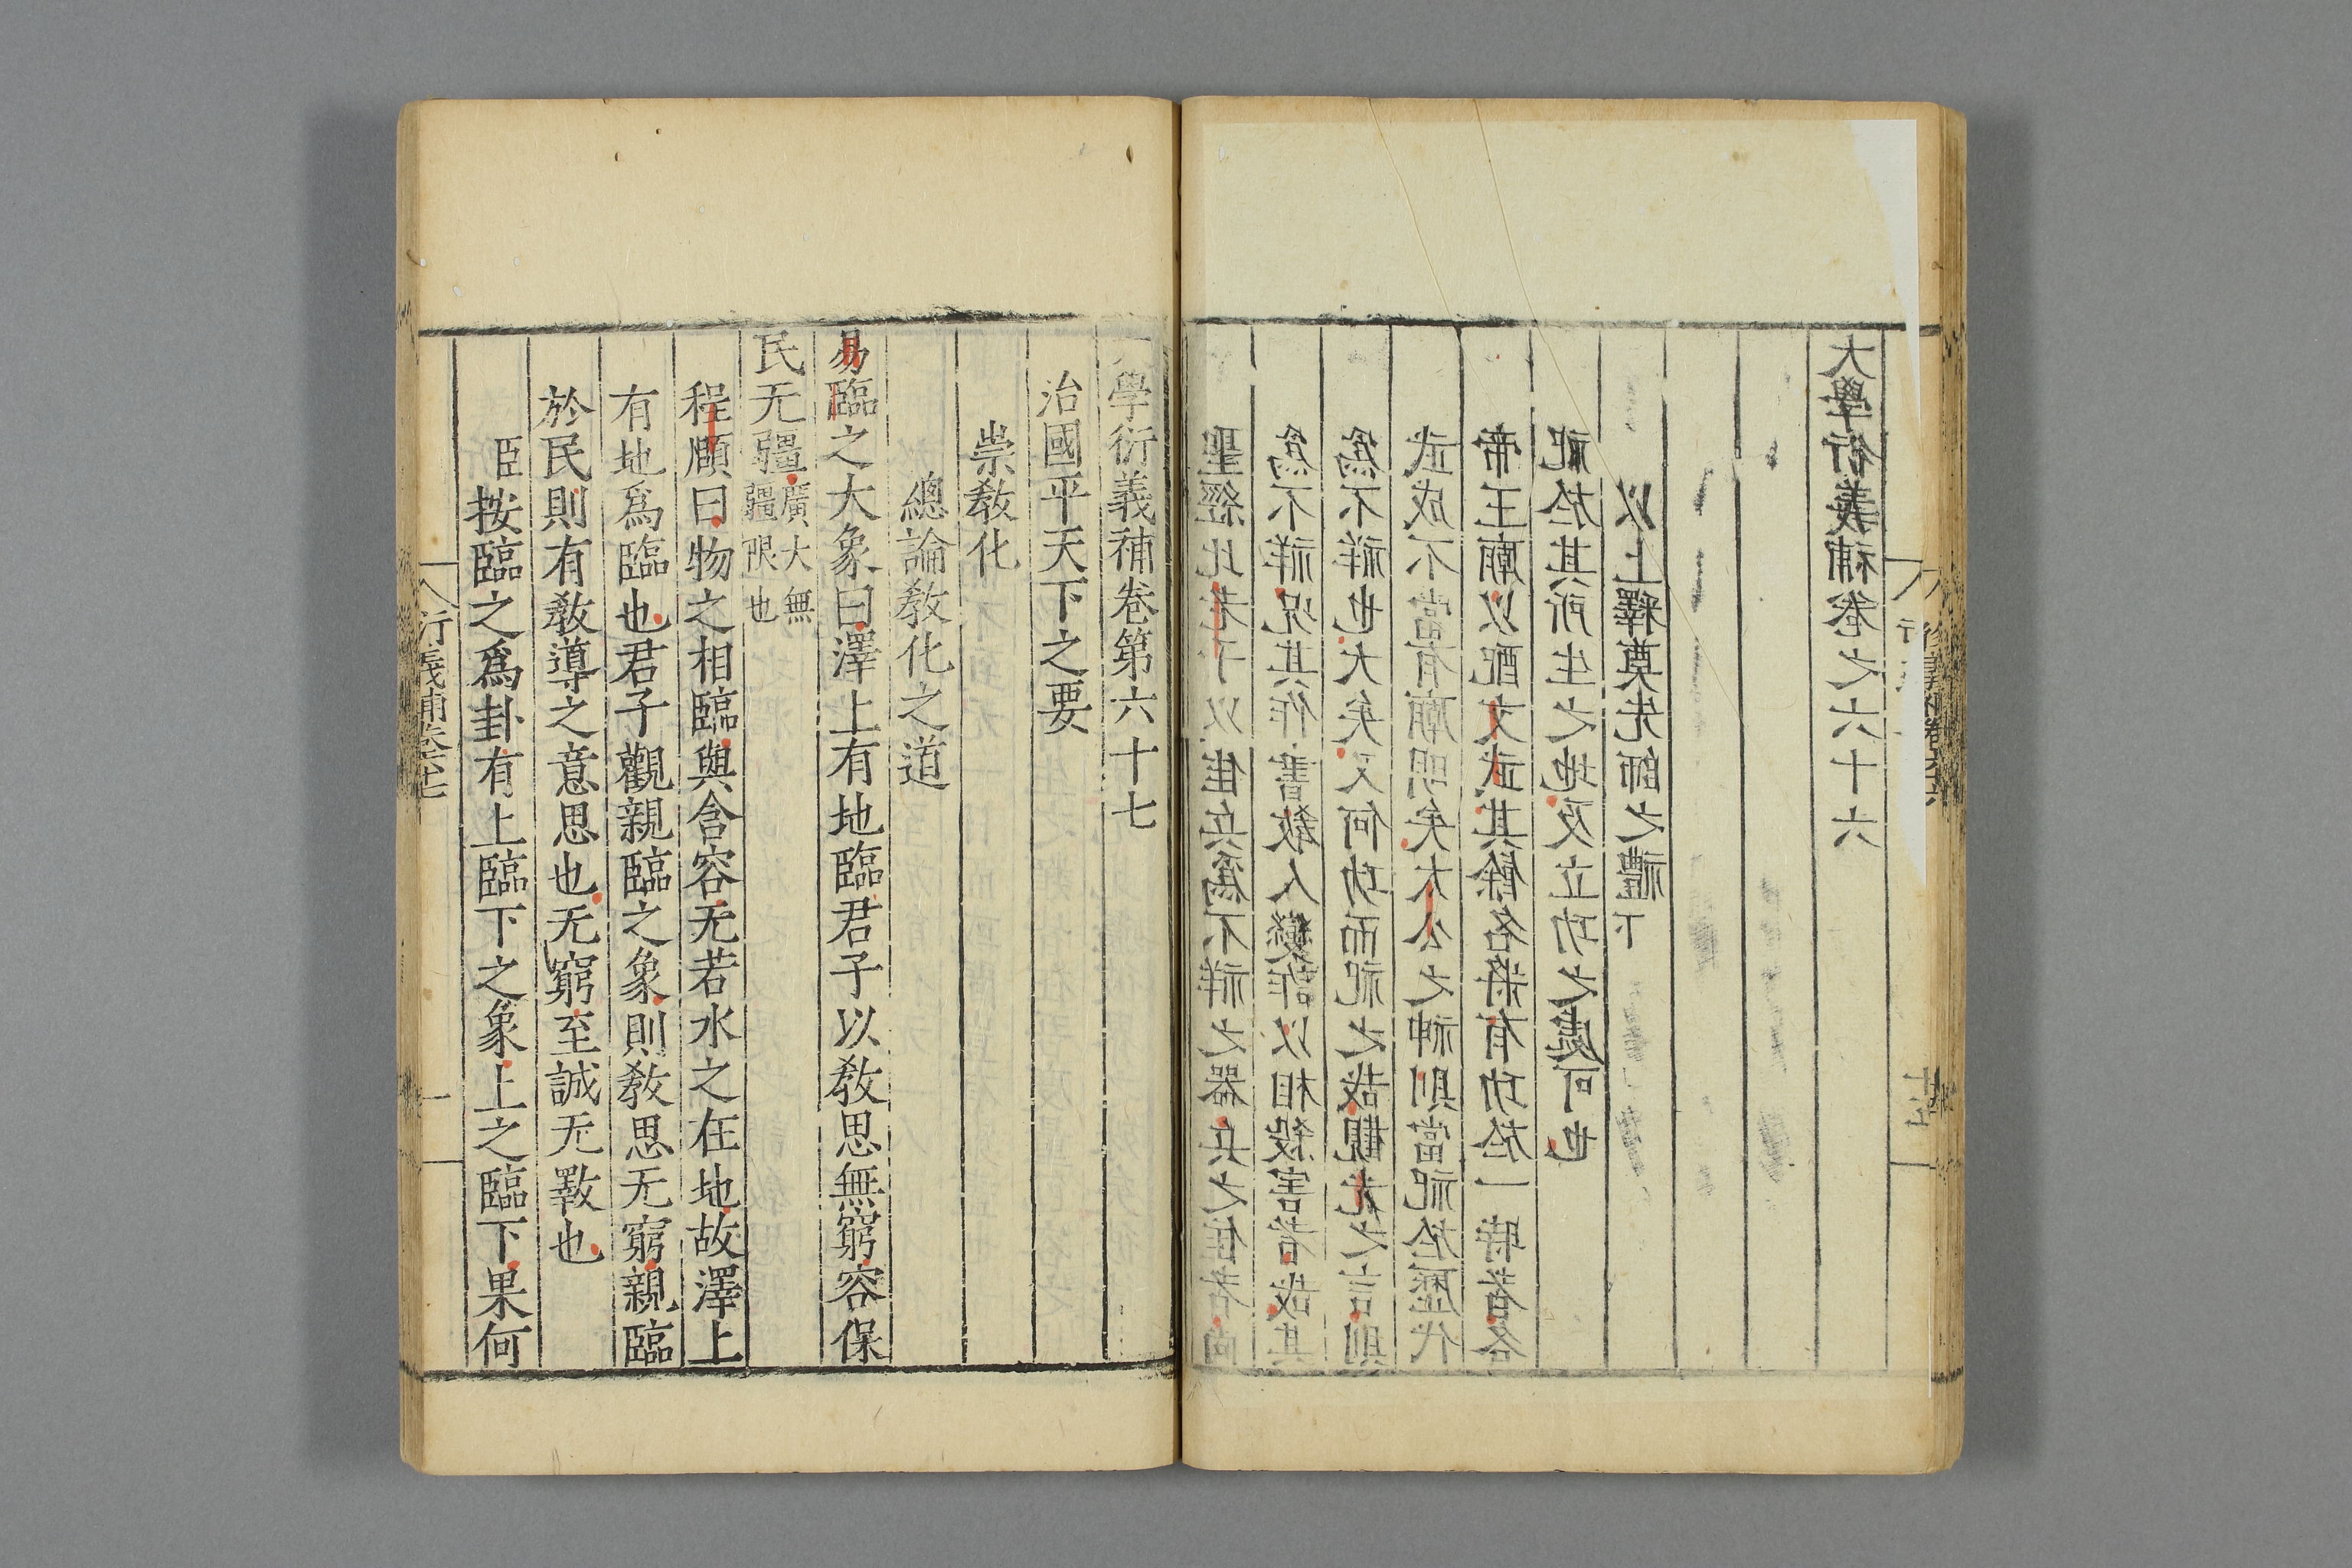 聖經比老子以佳兵爲不祥之器兵之佳者尚
爲不祥況其作書教人變詐以相殺害者哉其
爲不祥也大矣又何功而祀之哉觀光之言則
武成不當有廟明矣太公之神則當祀於歷代
帝王廟以配文武其餘名將有功於一時者各
祀於其所生之地及立功之處可也
以上釋奠先師之禮下
大學衍義補卷之六十六
學衍義補卷第六十七
治國平天下之要
崇敎化
總論敎化之道
易臨之大象曰澤上有地臨君子以敎思無窮容保
民无疆廣大無疆限也
程頤曰物之相臨與含容无若水之在地故澤上
有地爲臨也君子觀親臨之象則敎思无窮親臨
於民則有敎導之意思也无窮至誠无斁也
臣按臨之爲卦有上臨下之象上之臨下果何
衍義補卷六十七
一